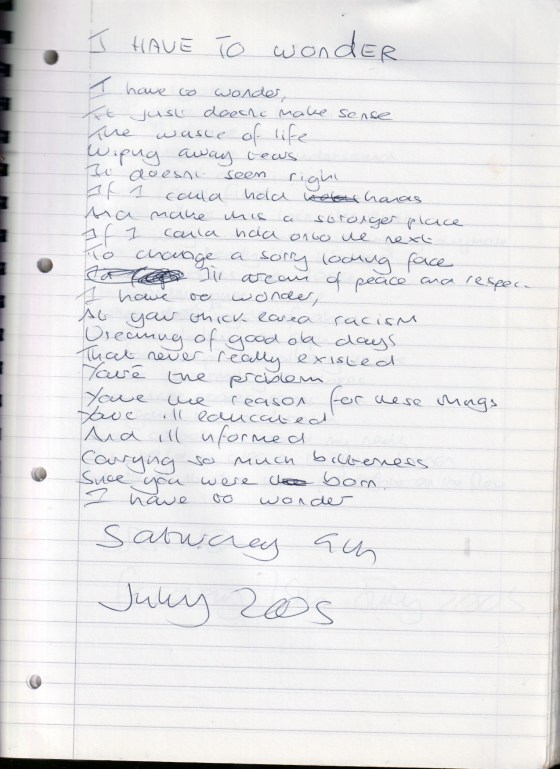 I HAVE TO WONDER
I have to wonder,
It just doesnt make sense
The waste of life
Wiping away tears
It doesnt seem right
If I could hold hands
And make this a stronger place
If I could hold onto the next
To change a sorry looking face
I'll dream of peace and respect
I have to wonder,
At your thick eared racism
Dreaming of good old days
That never really existed
You're the problem
You're the reason for these things
You're ill educated
And ill informed
Carrying so much bitterness
Since you were born.
I have to wonder
Saturday 9th
July 2005